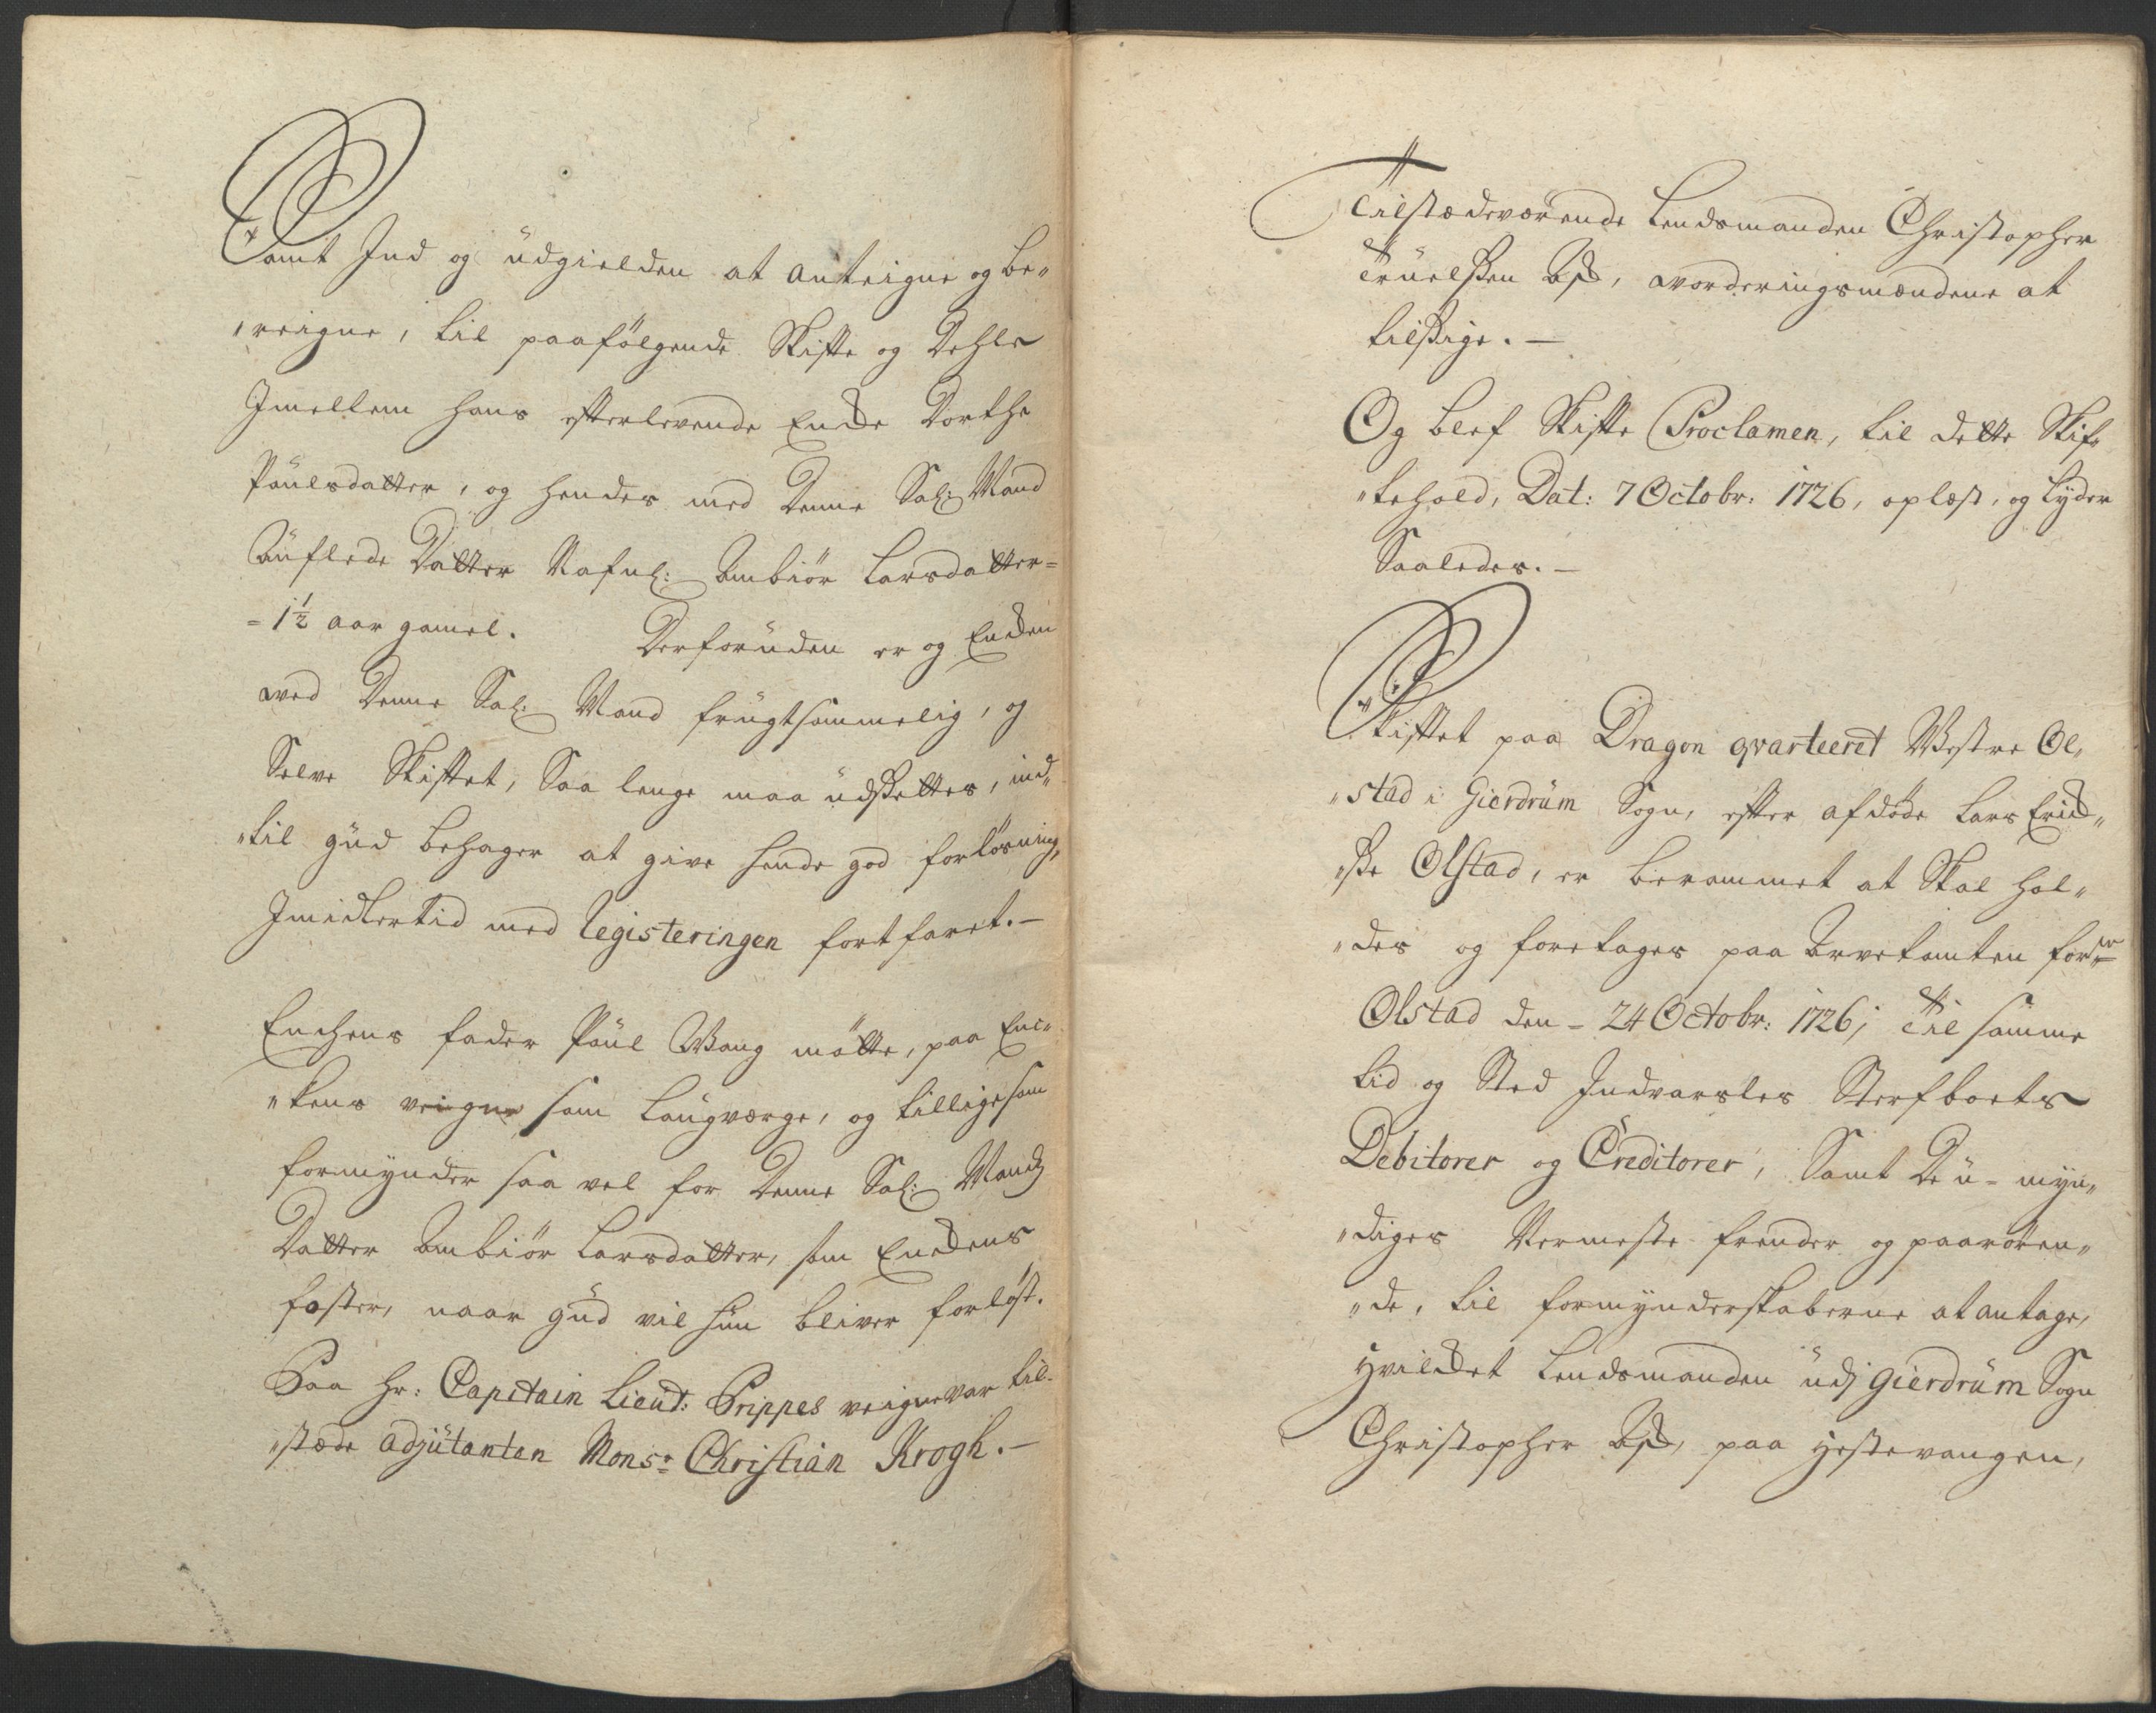 Samt Ind og üdgielden at anteigne og be„
„reigne, til paafölgende Skifte og Dehle
Imellem hans efterlevende Encke Dorthe
Pouelsdatter, og hendes med denne Sal: Mand
Aüflede Datter Nafnl: Anbiør Larsdatter=
=1½ aar gamel. Derforüden er og Encken
med denne Sal: Mand frügtsommelig, og
Selve Skiftet, Saa lenge maa üdsettes, ind„
„til güd behager at give hende god forlösning,
Imidlertid med Registeringen fortfaret.—
Enchens fader Poül Wang mötte, paa Enc„
„kens veigne som Laugværge, og tillige som
formynder saa vel for denne Sal: Mands
Datter Anbiør Larsdatter, som Enckens
foster, naar güd vil hün bliver forlöst.
Paa Hr: Capitain Lieut: Prippes veigne var til„
„stæde adjütanten Monsr: Christian Krogh.—
Tilstædeværende Lendsmanden Christopher
Trüelssen , vorderingsmændene at
tilsige.—
Og blef Skifte Proclamen, til dette Skif„
„tehold, Dat: 7 Octobr: 1726, oplæst, og lyder
Saaledes.—
Skiftet paa Dragon qvarteeret Westre Ol„
„stad i Gierdrüm Sogn, efter afdöde Lars Erich„
„sen Olstad, er berammet at Skal hol„
„des og foretages paa Arvetomten forne
Olstad den - 24 Octobr: 1726; Til samme
tid og Sted Indvarsles Sterfboets
Debitorer og Creditorer, Samt De ü-myn„
„diges Nermeste frender og paarören„
„de, til formynderskaberne at antage,
hvilcket Lendsmanden üdj Gierdrüm Sogn
Christopher , paa Hestevangen,